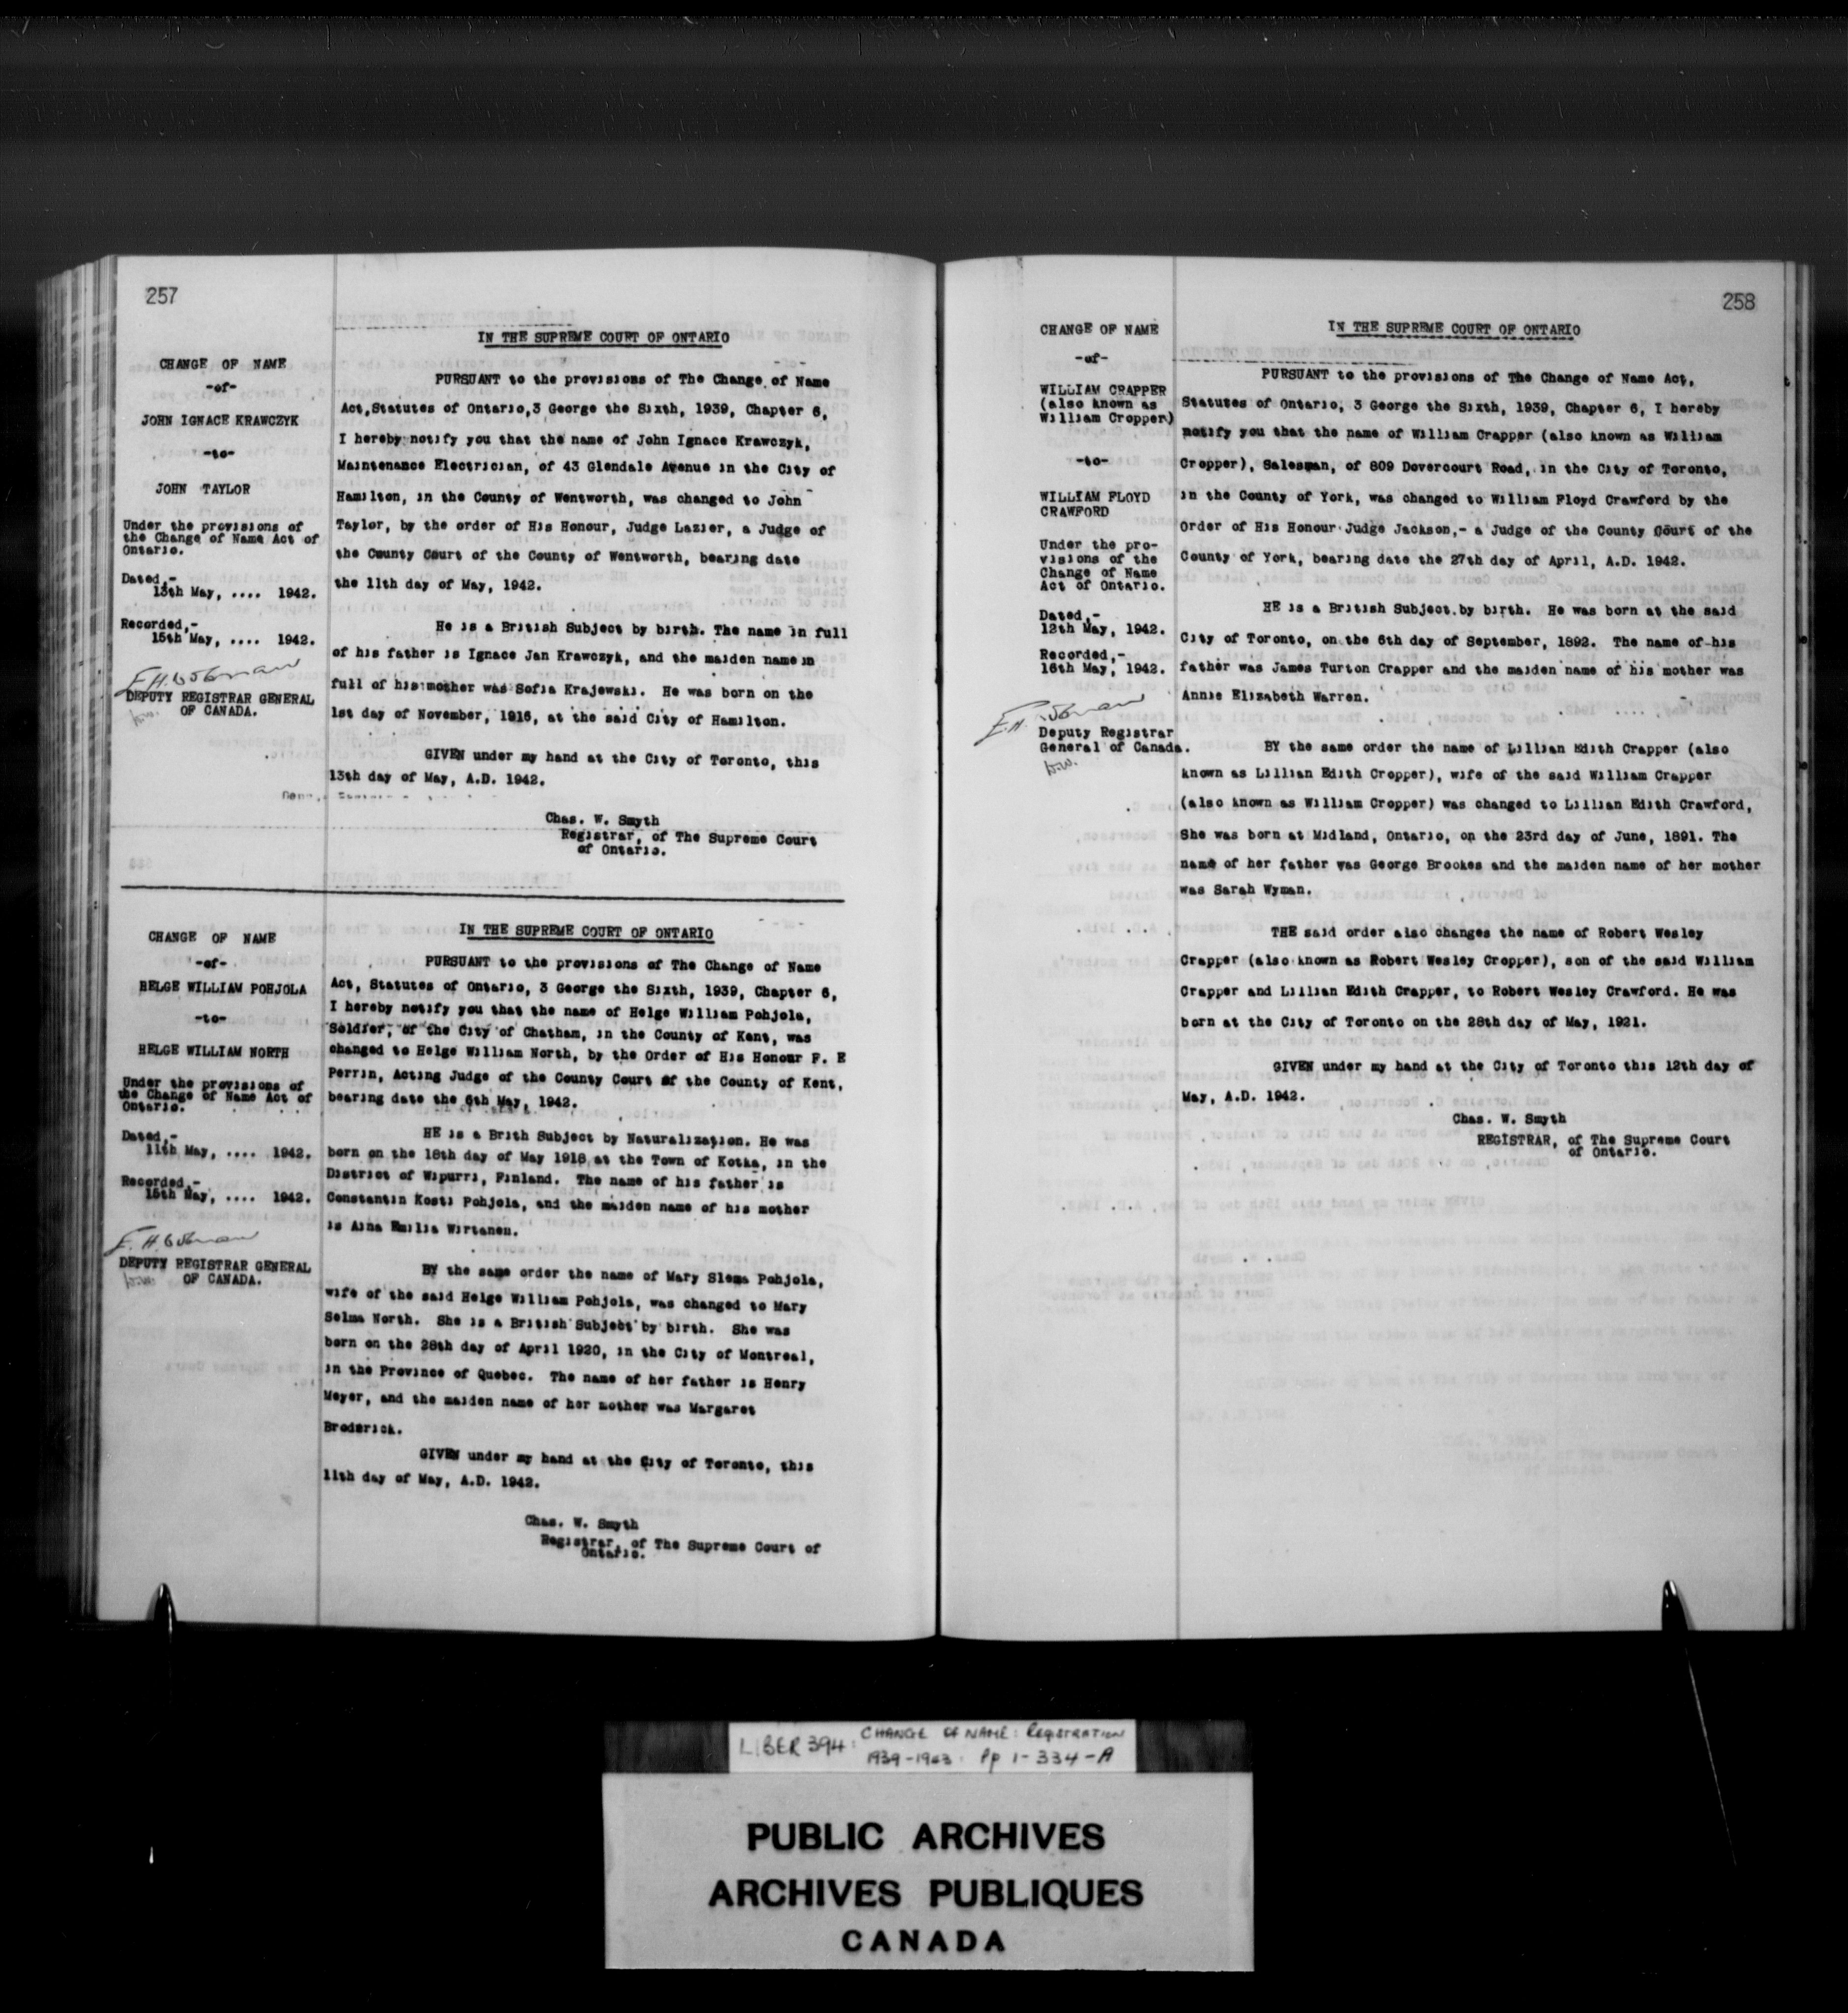 257
CHANGE OF NAME
-of-
JOHN IGNACE KRAWCZYK
-to-
JOHN TAYLOR
Under the provisions of
the Change of Name Act of
Ontario.
Dated,-
13th May, .... 1942.
Recorded,-
15th May, .... 1942.
DEPUTY REGISTRAR GENERAL
OF CANADA.
IN THE SUPREME COURT OF ONTARIO
PURSUANT to the provisions of The Change of Name
Act,Statutes of Ontario,3 George the Sixth, 1939, Chapter 6,
I hereby notify you that the name of John Ignace Krawczyk,
Maintenance Electrician, of 43 Glendale Avenue in the City of
Hamilton, in the County of Wentworth, was changed to John
Taylor, by the order of His Honour, Judge Lazier, a Judge of
the County Court of the County of Wentworth, bearing date
the 11th day of May, 1942.
He is a British Subject by birth. The name in full
of his father is Ignace Jan Krawczyk, and the maiden name in
full of his mother was Sofia Krajewski. He was born on the
1st day of November, 1916, at the said City of Hamilton.
GIVEN under my hand at the City of Toronto, this
13th day of May, A.D. 1942.
Chas. W. Smyth
Registrar, of The Supreme Court
of Ontario.
CHANGE OF NAME
-of-
HELGE WILLIAM POHJOLA
-to-
HELGE WILLIAM NORTH
Under the provisions of
the Change of Name Act of
Ontario.
Dated,-
11th May, .... 1942.
Recorded,-
15th May, .... 1942.
DEPUTY REGISTRAR GENERAL
OF CANADA.
IN THE SUPREME COURT OF ONTARIO
PURSUANT to the provisions of The Change of Name
Act, Statutes of Ontario, 3 George the Sixth, 1939, Chapter 6,
I hereby notify you that the name of Helge William Pohjola,
Soldier, of the City of Chatham, in the County of Kent, was
changed to Helge William North, by the Order of His Honour F. E
Perrin, Acting Judge of the County Court of the County of Kent,
bearing date the 6th May, 1942.
HE is a Brith Subject by Naturalization. He was
born on the 18th day of May 1918 at the Town of Kotka, in the
District of Wipurri, Finland. The name of his father is
Constantin Kosti Pohjola, and the maiden name of his mother
is Aina Emilia Wirtanen.
BY the same order the name of Mary Slema Pohjola,
wife of the said Helge William Pohjola, was changed to Mary
Selma North. She is a British Subject by birth. She was
born on the 28th day of April 1920, in the City of Montreal,
in the Province of Quebec. The name of her father is Henry
Meyer, and the maiden name of her mother was Margaret
Broderick.
GIVEN under my hand at the City of Toronto, this
11th day of May, A.D. 1942.
Chas. W. Smyth
Registrar, of The Supreme Court of
Ontario.
258
CHANGE OF NAME
-of-
WILLIAM CRAPPER
(also known as
William Cropper)
-to-
WILLIAM FLOYD
CRAWFORD
Under the pro-
visions of the
Change of Name
Act of Ontario.
Dated,-
12th May, 1942.
Recorded,-
16th May, 1942.
Deputy Registrar
General of Canada.
IN THE SUPREME COURT OF ONTARIO
PURSUANT to the provisions of The Change of Name Act,
Statutes of Ontario, 3 George the Sixth, 1939, Chapter 6, I hereby
notify you that the name of William Crapper (also known as William
Cropper), Salesman, of 809 Dovercourt Road, in the City of Toronto,
in the County of York, was changed to William Floyd Crawford by the
Order of His Honour Judge Jackson,- a Judge of the County Court of the
County of York, bearing date the 27th day of April, A.D. 1942.
HE is a British Subject by birth. He was born at the said
City of Toronto, on the 6th day of September, 1892. The name of his
father was James Turton Crapper and the maiden name of his mother was
Annie Elizabeth Warren.
BY the same order the name of Lillian Edith Crapper (also
known as Lillian Edith Cropper), wife of the said William Crapper
(also known as William Cropper) was changed to Lillian Edith Crawford,
She was born at Midland, Ontario, on the 23rd day of June, 1891. The
name of her father was George Brookes and the maiden name of her mother
was Sarah Wyman.
THE said order also changes the name of Robert Wesley
Crapper (also known as Robert Wesley Cropper), son of the said William
Crapper and Lillian Edith Crapper, to Robert Wesley Crawford. He was
born at the City of Toronto on the 28th day of May, 1921.
GIVEN under my hand at the City of Toronto this 12th day of
May, A.D. 1942.
Chas. W. Smyth
REGISTRAR, of The Supreme Court
of Ontario.
LIBER 394: CHANGE OF NAME: Registration
1939-1963 : Pp 1-334-A
PUBLIC ARCHIVES
ARCHIVES PUBLIQUES
CANADA